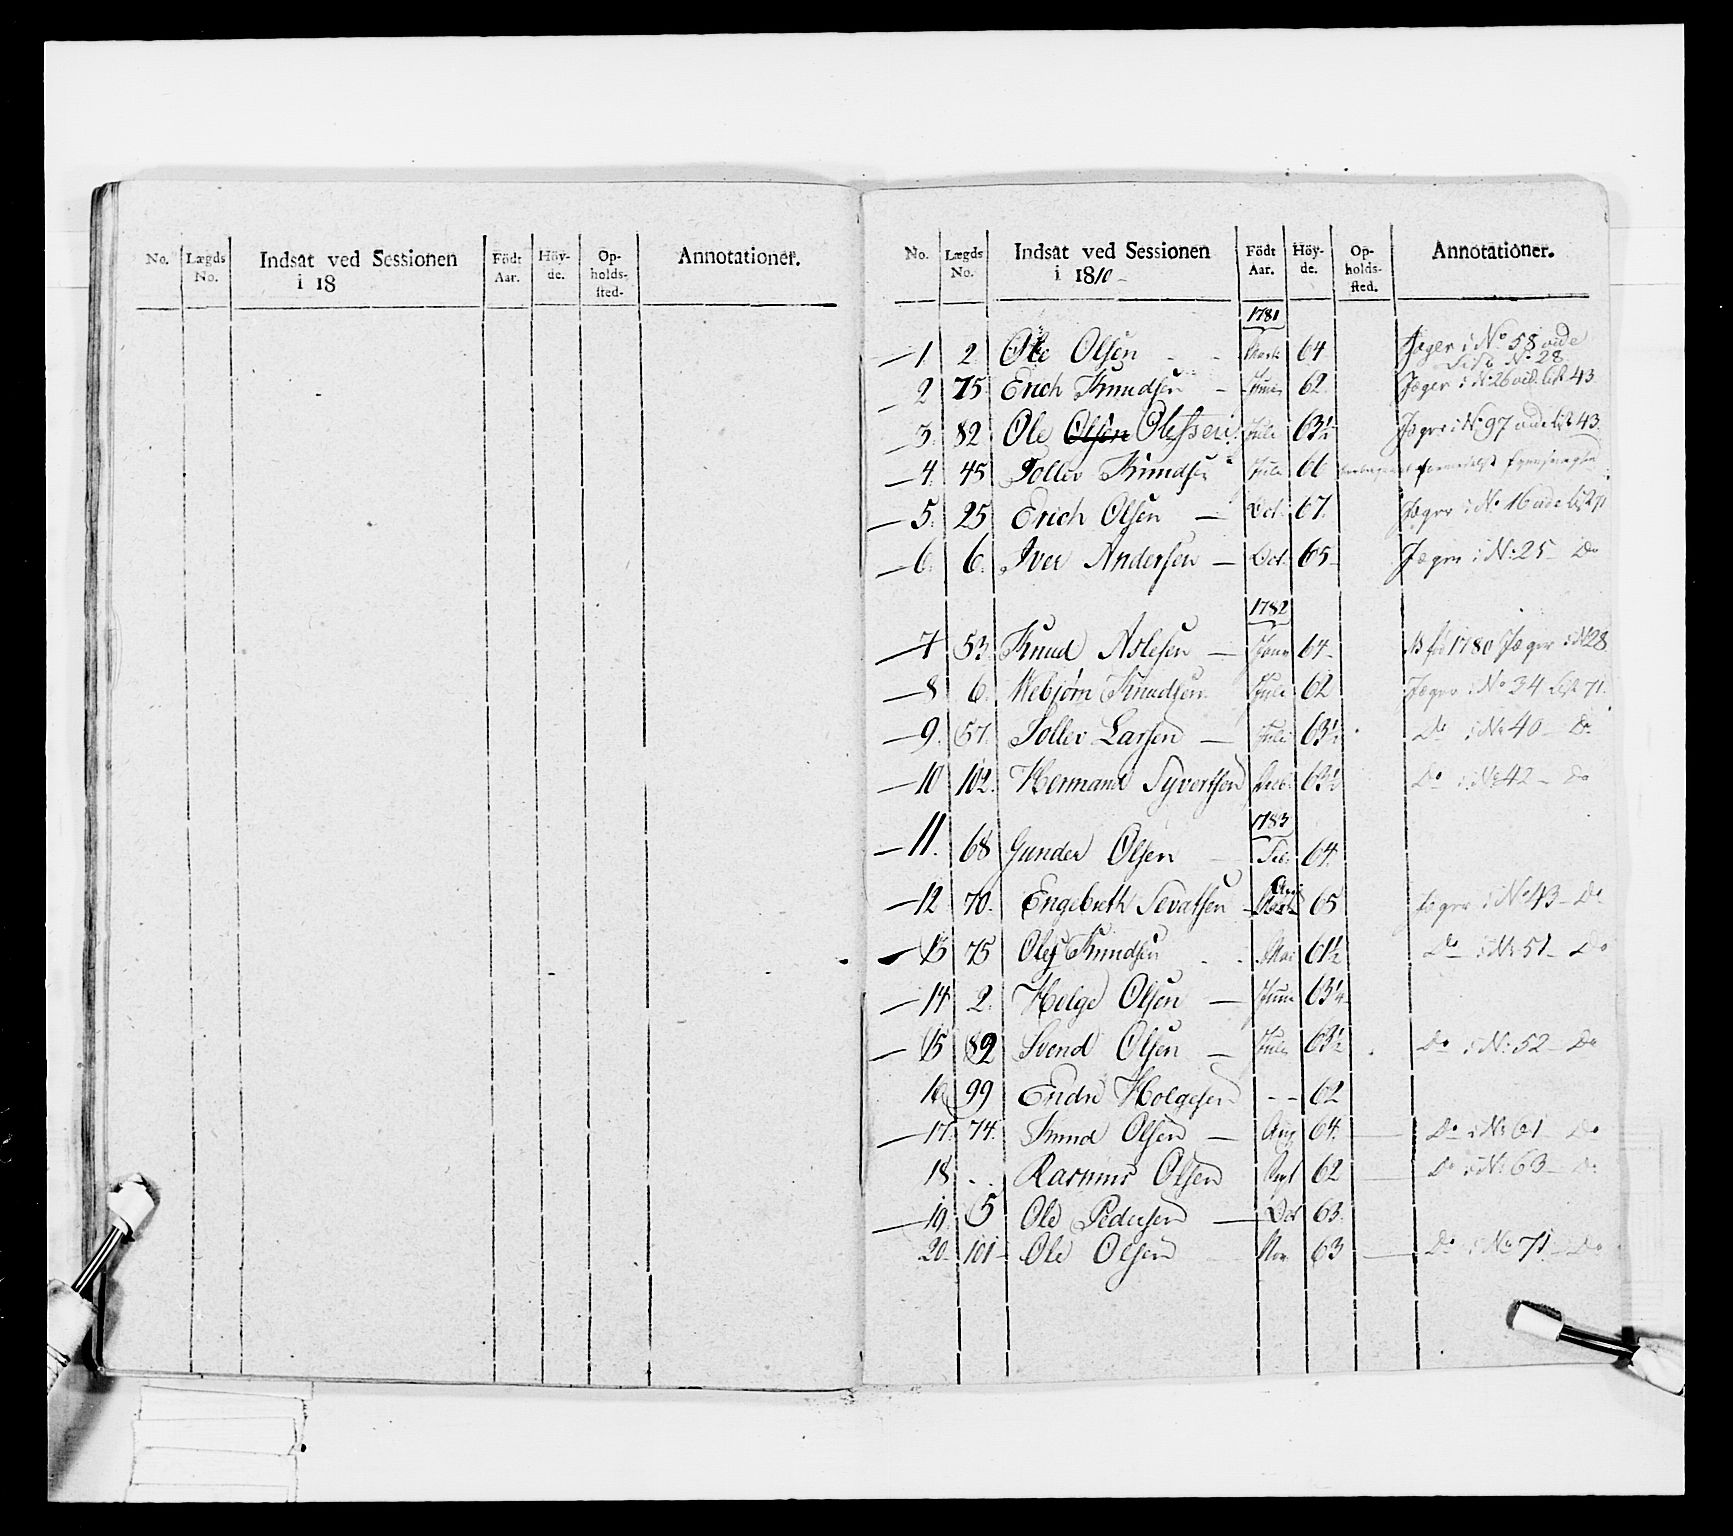 No. Lægds No. Indsat ved Sessionen i 18 Födt Aar. Höy-de. Op-holds-sted. Annotationer.
No. Lægds No. Indsat ved Sessionen i 1810 Födt Aar. Höy-de. Op-holds-sted. Annotationer.
1781
1. 2. Ole Olsen - - Marts 64 Jæger i No 58 vide
No 28
2 75 Erich Knudsen - Juni 62. Jæger i N: 26 vid. List 43
3. 82 Ole Olsen Olefsen Juli 63½ Jæger i No 97 vide List 43
4. 45 Tollev Knudsen Juli 66
5. 25 Erich Olsen - Oct. 67. Jæger i No 16 vide
6. 6. Iver Andersen - Oct. 65 - Jæger i N: 25 - Do
1782
7 53. Knud Aslesen - Janr 64 - 1780 Jæger i N 28
8 6. Knudsen Juli 62 Jæger i No 34 List 71.
9. 57. Tollev Larsen - Juli 63½ Do i No 40 - Do
10 102. Hermand Syvertsen Decb. 63½ Do i No 42 - Do
1783
11. 68 Gunder Olsen - Feb. 64.
12 70. Engebreth Sevatsen 65 Jæger i No 43 - Do
13 75 Ole Knudsen - - Mai 61½ Do i No 51 - Do
14 2. Helge Olsen - Juni 63¼
15 89 Svend Olsen - Juli 63½ Do i N: 52 - Do
16 99 Endre Holgesen - - 62
17. 74. Knud Olsen - Aug 64. Do i No 61 - Do
18 - - Rasmus Olsen 62 Do i No 63 - Do
19. 5 Ole Pedersen - Oct 63.
20. 101 - Ole Olsen Nov 63 Do i No 71 - Do